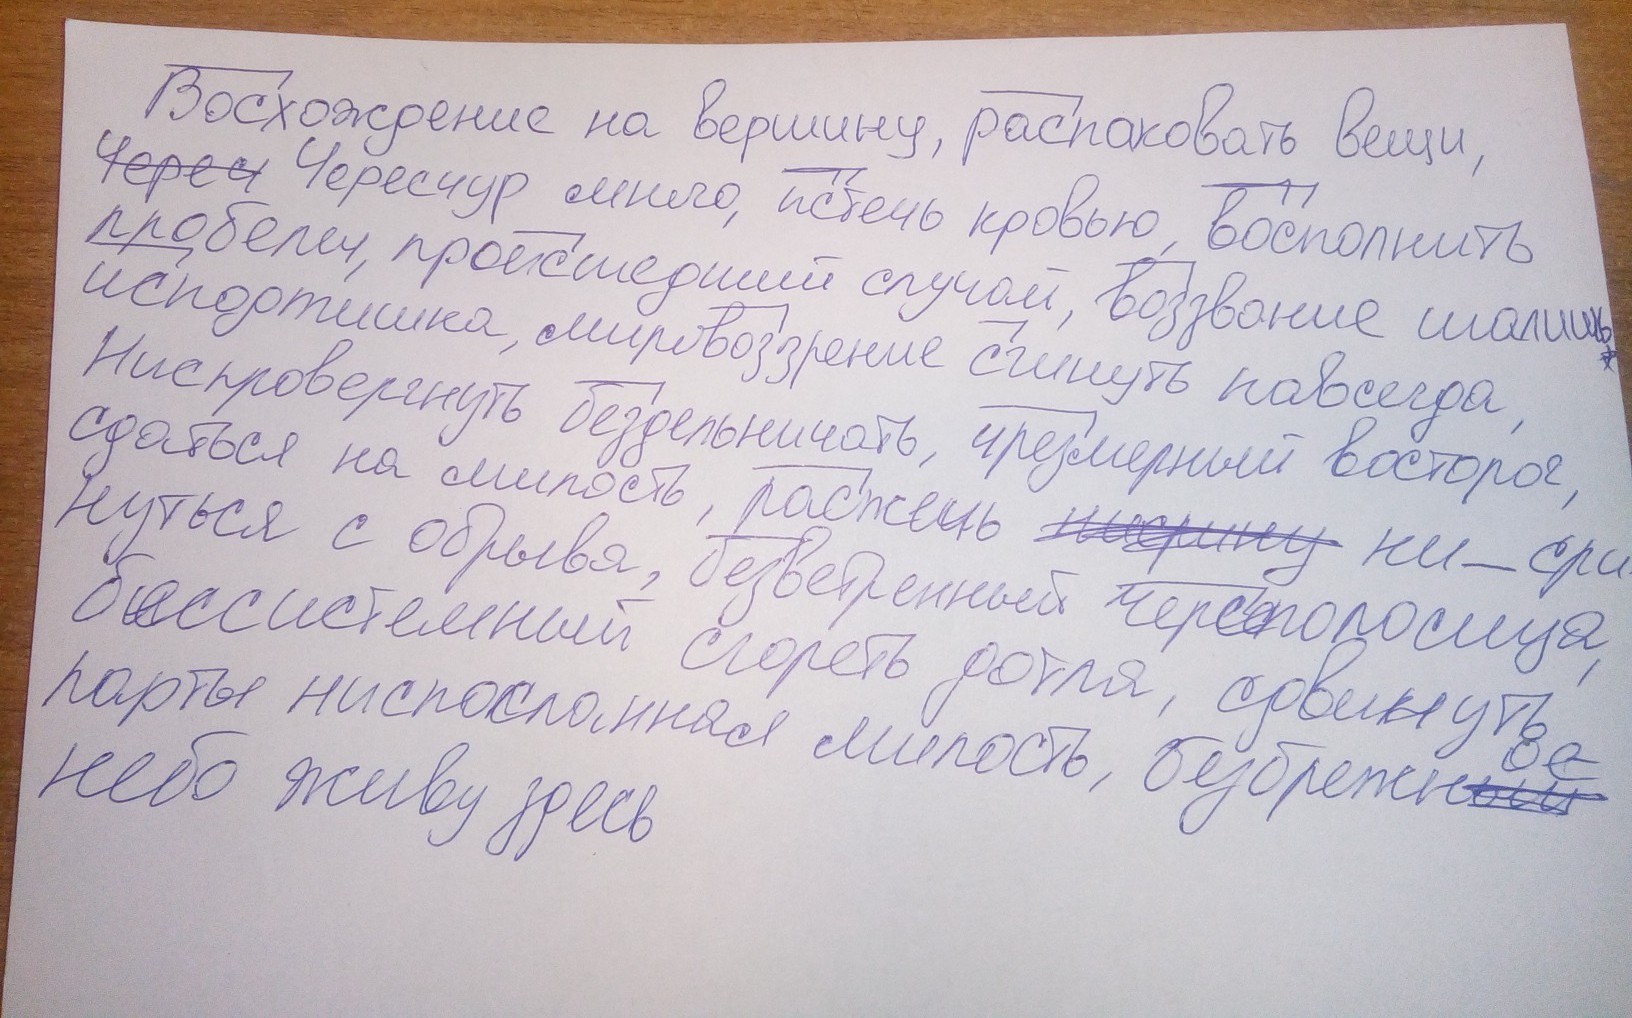 Восхождение на вершину, распаковать вещи,
Череч Чересчур много, истечь кровью, восполнить
пробелы, происшедший случай, воззвание шалишь
испортишка, мировоззрение сгинуть навсегда,
Ниспровергнуть бездельничать, чрезмерный восторг,
сдаться на милость, разжечь ни_сри
нуться с обрыва, безветренный череcполосица,
бессистемный сгореть дотла, сдвинуть
парты ниспосланная милость, безбрежное
небо живу здесь